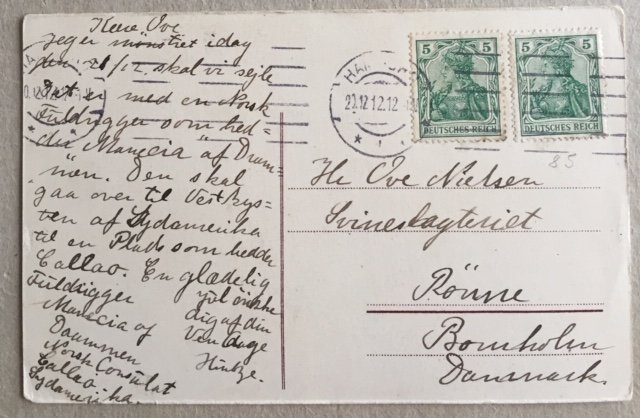 Kære Ove
Jeg er mønstret idag
den 21/12. skal vi sejle
Det er med en Norsk
Fuldrigger som hed-
der Manicia af Dram-
men. Den skal
gaa over til Vestkys-
ten af Sydamerika
til en Plads som hedder
Callao. En glædelig
jul önske
dig af din
Ven Aage
Hintze.
Fuldrigger
Manicia af
Drammen
Norsk Consulat
Callao.
Sydamerika.
20.12.12.12
5 5
DEUTSCHES REICH
5 5
DEUTSCHES REICH
85
Hr Ove Nielsen
Svineslagteriet
Rönne
Bornholm
Danmark.